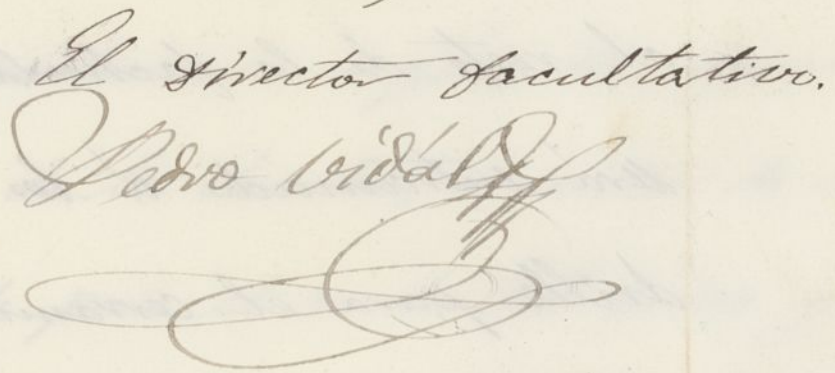 El Director facultativo.
Pedro Vidál